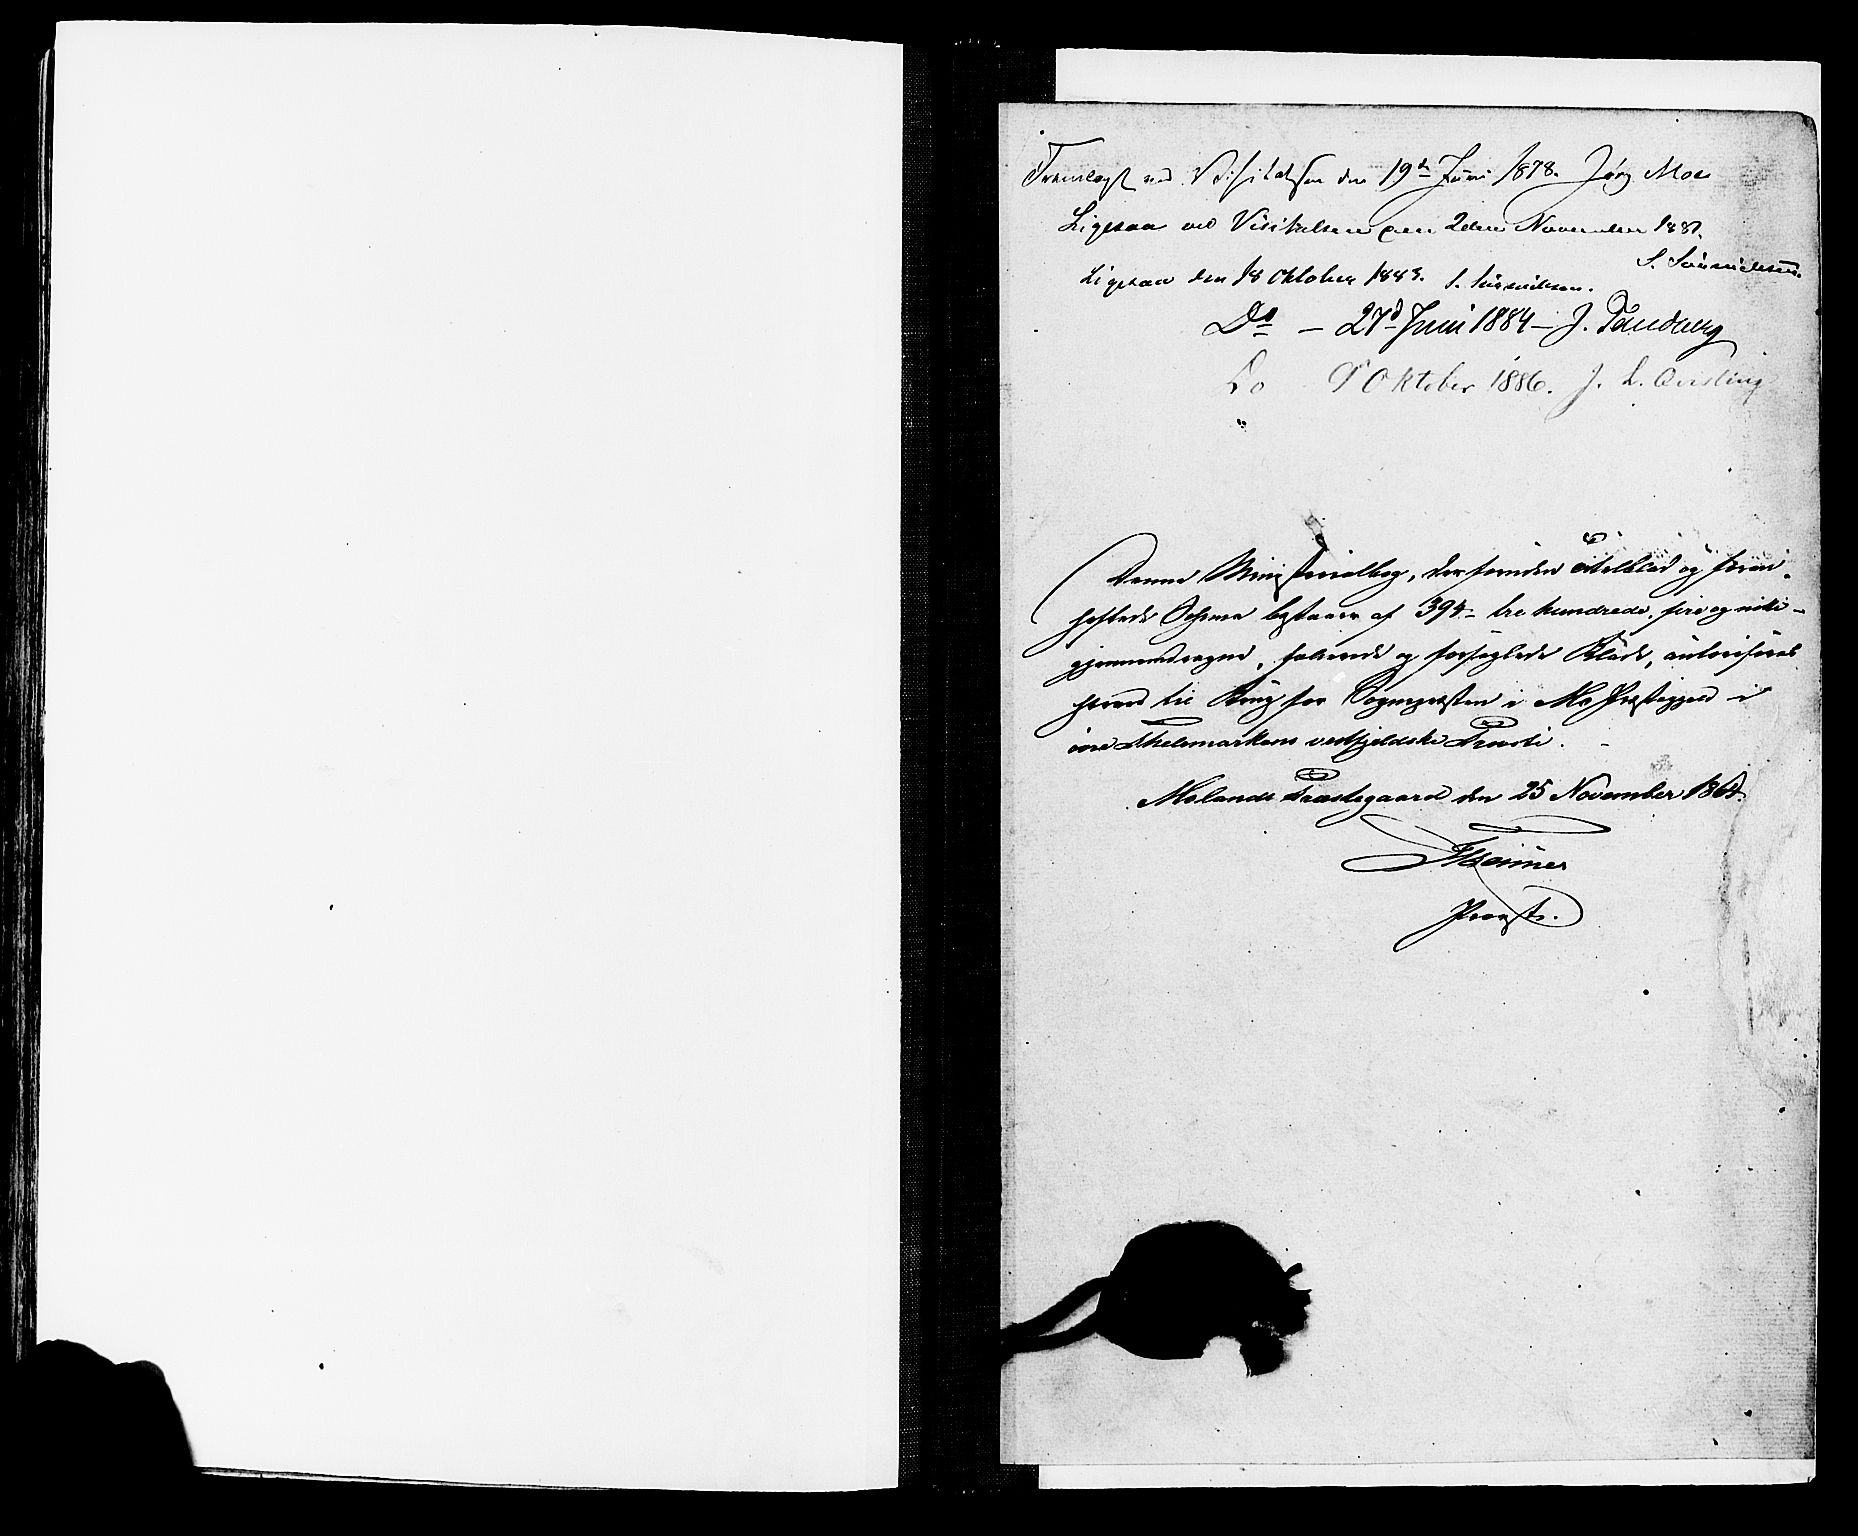 Fremlagt ved Visitatsen den 19de Juni 1878. Jørg. Moe
Ligesaa ved Visitatsen den 2den November 1881.
Ligesaa den 18 Oktober 1883.
Do – 27d Juni 1884 – J. Tandberg
Do 9' Oktober 1886. J. L. Qvisling
"
Denne Ministerialbog, der foruden Titelblad og foran-
heftede Schema bestaaer af 394 – tre hundrede, fire og nitti –
gjennemdragne, folierede og forseglede Blade, autoriseres
herved til Brug for Sognepræsten i Mo Præstegjeld i
øvre Thelemarkens vestfjeldske Provsti.
Molands Præstegaard den 25 November 1864.
Provst.